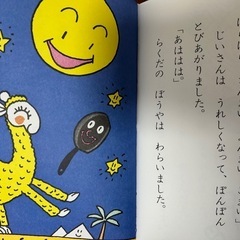 じいさんは うれしくなって、ぽんぽん
とびあがりました。
「あははは。」
らくだの ぼうやは わらいました。